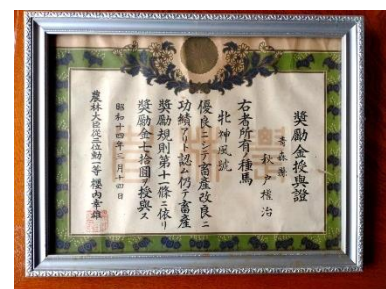 奬勵金授與證
青森縣
秋戸權治
右者所有種馬
牝神風號
優良ニシテ畜産改良ニ
功績アリト認ム仍テ畜産
奬勵規則第十一條ニ依リ
奬勵金七拾圓ヲ授與ス
昭和十四年三月十四日
農林大臣從三位勳一等櫻内幸雄